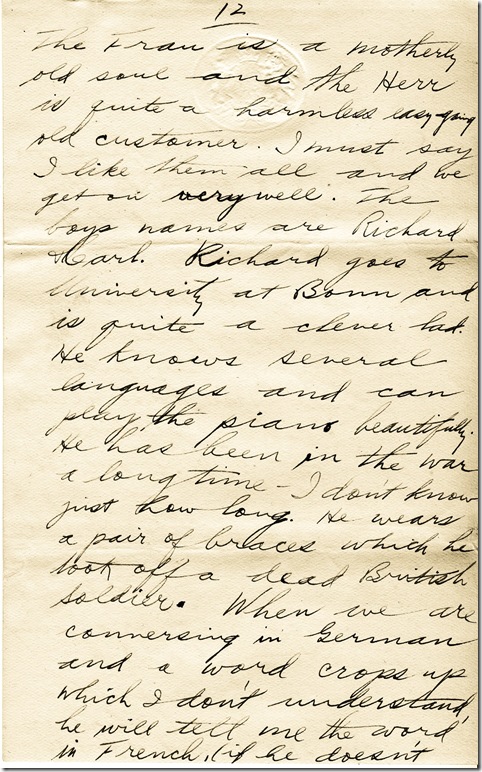 12
The Frau is a motherly
old soul and the Herr
is quite a harmless easy-going
old customer. I must say
I like them all and we
get on very well. The
boys names are Richard
& Carl. Richard goes to
University at Bonn and
is quite a clever lad.
He knows several
languages and can
play the piano beautifully.
He has been in the war
a long time - I don't know
just how long. He wears
a pair of braces which he
took off a dead British
soldier. When we are
conversing in German
and a word crops up
which I don't understand
he will tell me the word
in French, (if he doesn't